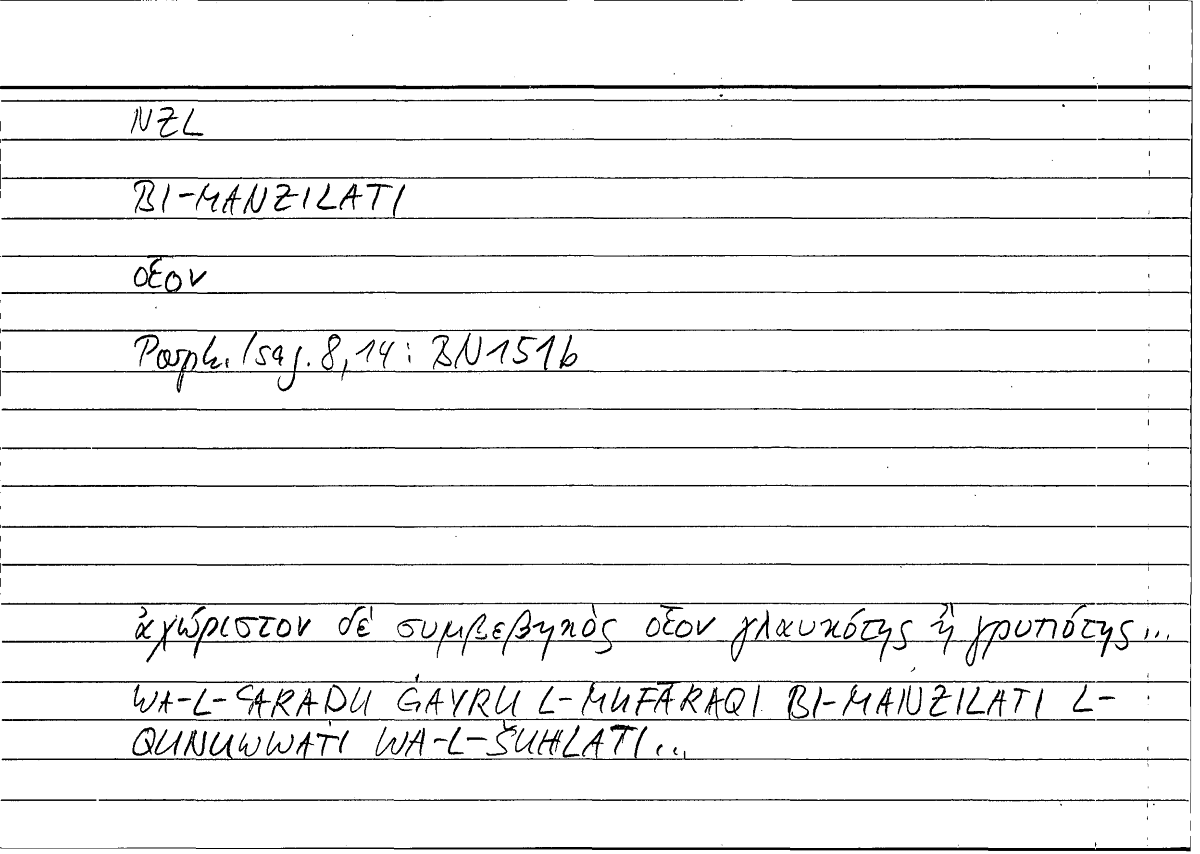 NZL
BI-MANZILATI
οἷον
Porph. Isag. 8,14: BN 151b
ἀχώριστον δὲ συμβεβηκὸς οἷον γλαυκότης ἢ γρυπότης...
WA-L-ʿARAḌU ĠAYRU L-MUFĀRAQI BI-MANZILATI L-
QUNUWWATI WA-L-ŠUHLATI...